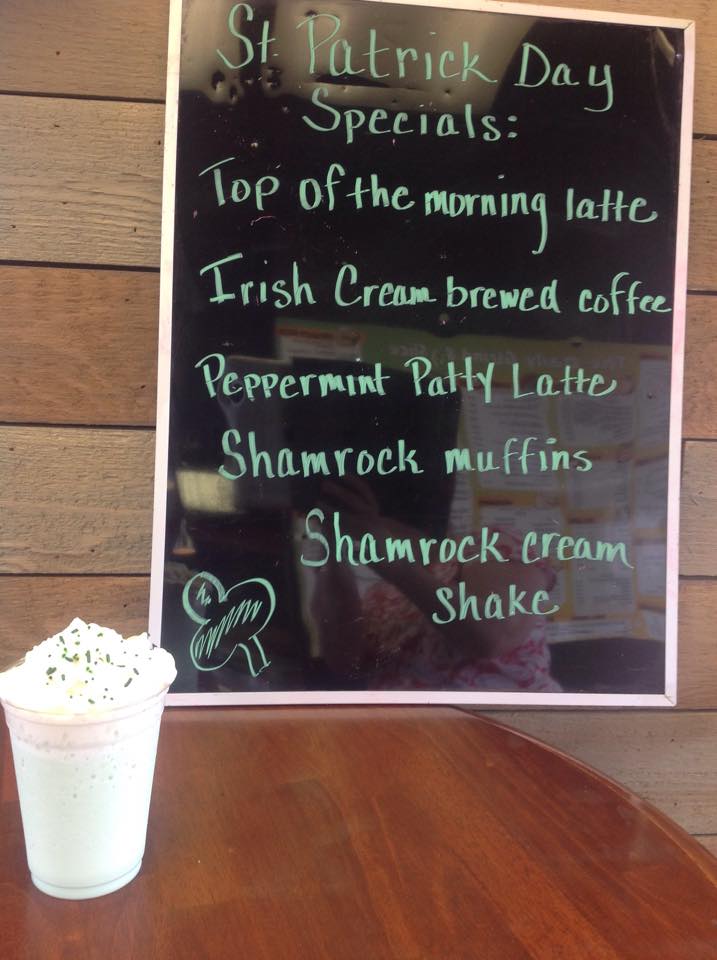 St. Patrick Day
Specials:
Top of the morning latte
Irish Cream brewed coffee
Peppermint Patty Latte
Shamrock muffins
Shamrock cream
shake